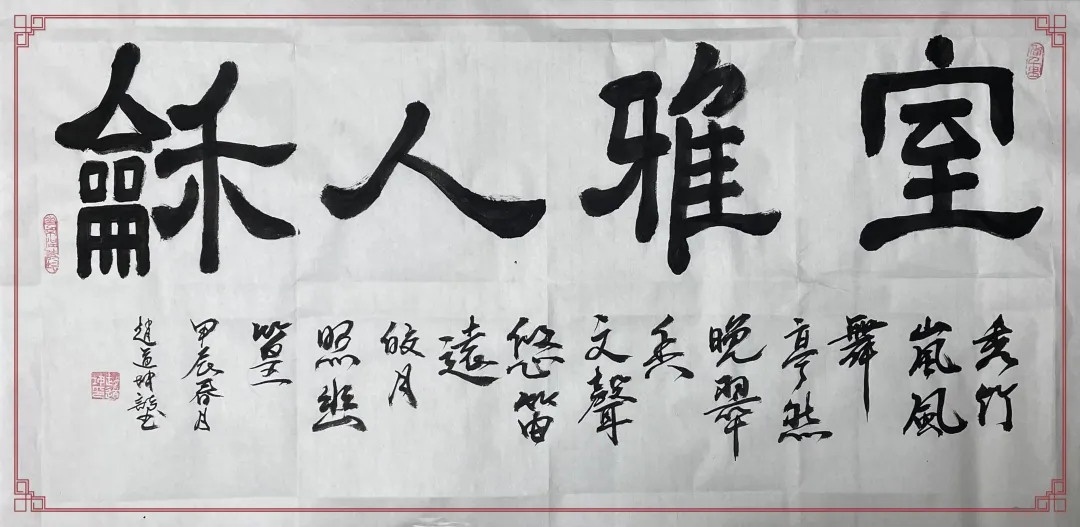 室雅人龢
秀竹
嵐風
舞
亭然
晚翠
文聲
悠笛
遠
皎月
照幽
篁
甲辰春月
趙道坤